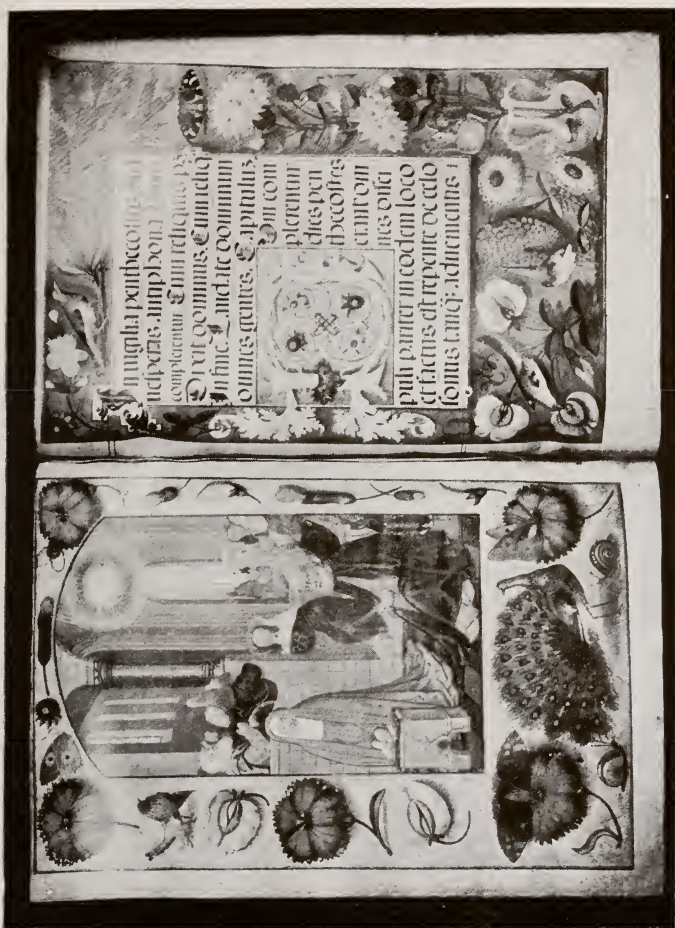 In vigilia penthecostes, ad
vesperas antiphona
complerentur Cum reliquis ps
Dixit dominus. Cum reliq
In fine Laudate dominum
omnes gentes. Capitulum
Dum com
plerentur
dies pen
thecostes
erant om
nes disci
puli pariter in eodem loco
et factus est repente de celo
sonus tanq; aduenientis